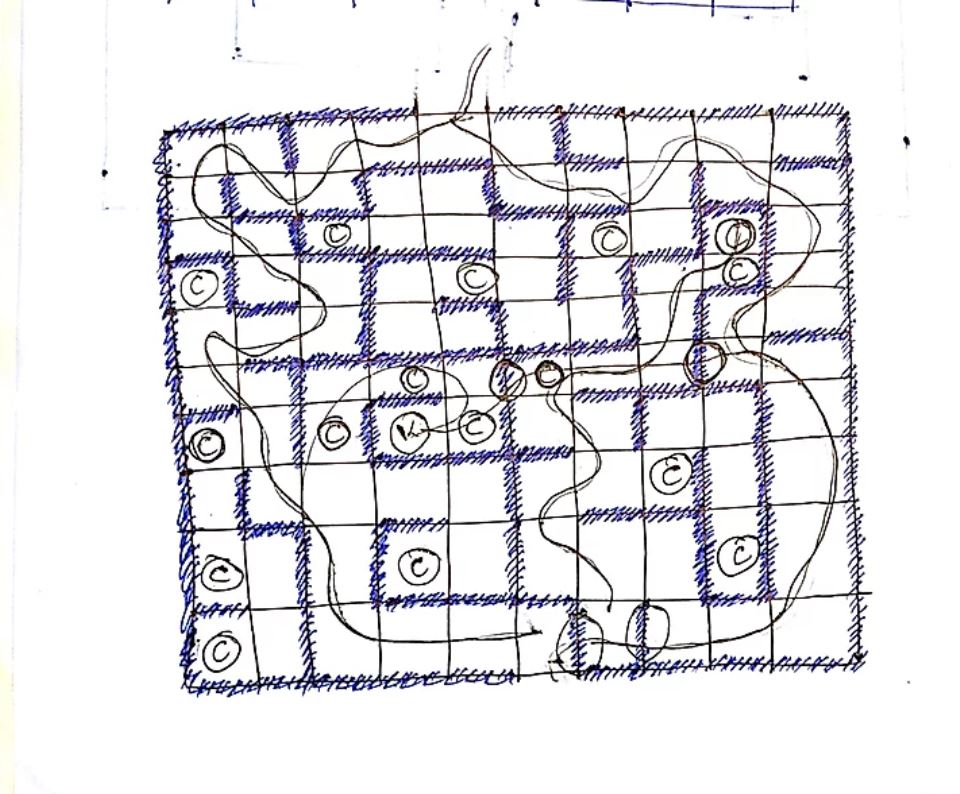 C C
C C C
C C
C C K C
C
C C C
C